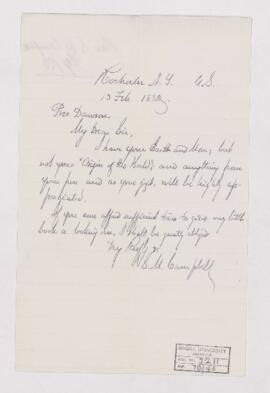 Rochester N. Y. U.S.
13 Feb 188
Prof Dawson
My Dear Sir,
I have your Earth and Man, but
not your "Origin of the World", and anything from
your pen and as your gift, will be highly ap-
preciated.
If you can afford sufficient time to give my little
book a looking over, I shall be greatly obliged
Very Resp'y yr
M. Campbell
McGILL UNIVERSITY
ARCHIVES
ACC. NO. 2211
REF.